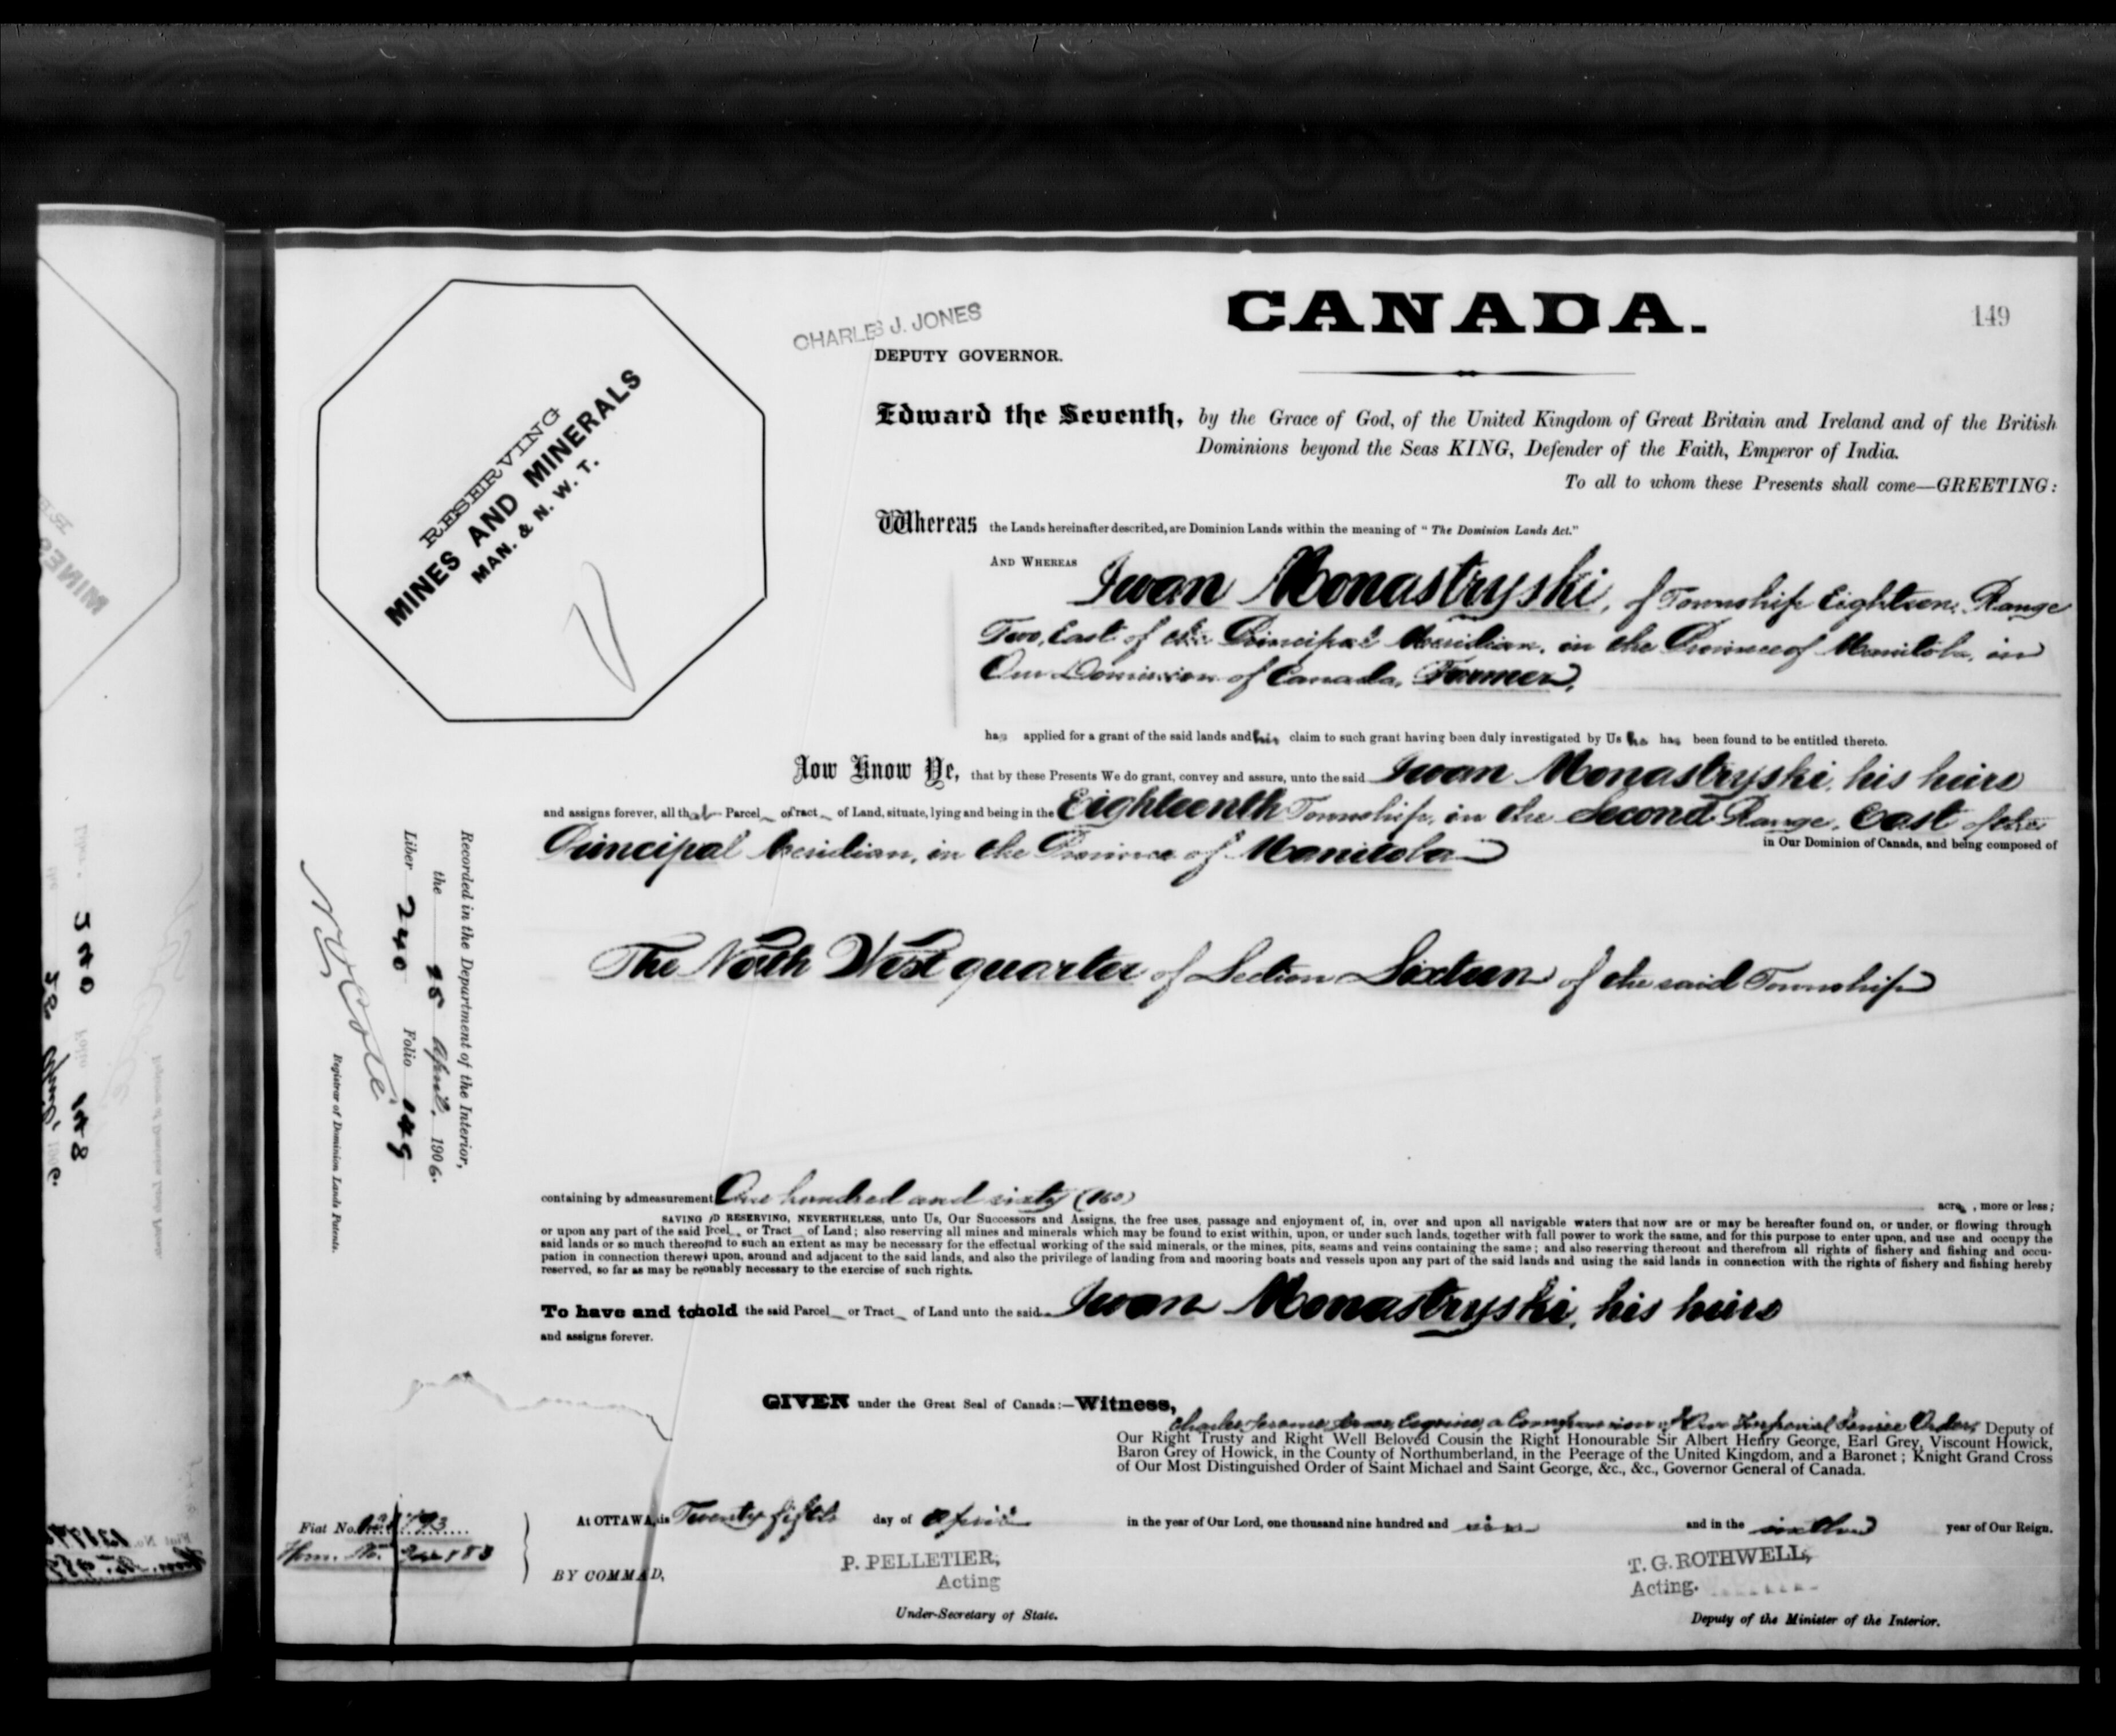 CANADA.
149
CHARLES J. JONES
DEPUTY GOVERNOR.
RESERVING
MINES AND MINERALS
MAN. & N. W. T.
Edward the Seventh, by the Grace of God, of the United Kingdom of Great Britain and Ireland and of the British
Dominions beyond the Seas KING, Defender of the Faith, Emperor of India.
To all to whom these Presents shall come—GREETING:
Whereas the Lands hereinafter described, are Dominion Lands within the meaning of "The Dominion Lands Act."
AND WHEREAS Iwan Monastryski, of Township Eighteen, Range
Two, East of the Principal Meridian, in the Province of Manitoba, in
Our Dominion of Canada, Farmer,
has applied for a grant of the said lands and his claim to such grant having been duly investigated by Us he has been found to be entitled thereto.
Now Know Ye, that by these Presents We do grant, convey and assure, unto the said Iwan Monastryski, his heirs
and assigns forever, all that Parcel or Tract of Land, situate, lying and being in the Eighteenth Township, in the Second Range, East of the
Principal Meridian, in the Province of Manitoba
in Our Dominion of Canada, and being composed of
The North West quarter of Section Sixteen of the said Township
Recorded in the Department of the Interior,
the 25 April, 1906.
Liber 240 Folio 149
N O Coté
Registrar of Dominion Lands Patents.
containing by admeasurement One hundred and sixty (160) acres, more or less;
SAVING D RESERVING, NEVERTHELESS, unto Us, Our Successors and Assigns, the free uses, passage and enjoyment of, in, over and upon all navigable waters that now are or may be hereafter found on, or under, or flowing through
or upon any part of the said Prcel or Tract of Land; also reserving all mines and minerals which may be found to exist within, upon, or under such lands, together with full power to work the same, and for this purpose to enter upon, and use and occupy the
said lands or so much thereof nd to such an extent as may be necessary for the effectual working of the said minerals, or the mines, pits, seams and veins containing the same; and also reserving thereout and therefrom all rights of fishery and fishing and occu-
pation in connection therewi upon, around and adjacent to the said lands, and also the privilege of landing from and mooring boats and vessels upon any part of the said lands and using the said lands in connection with the rights of fishery and fishing hereby
reserved, so far as may be reonably necessary to the exercise of such rights.
To have and to hold the said Parcel or Tract of Land unto the said Iwan Monastryski, his heirs
and assigns forever.
GIVEN under the Great Seal of Canada:—Witness,
Charles Jerome Jones, Esquire, a Companion of Our Imperial Service Order, Deputy of
Our Right Trusty and Right Well Beloved Cousin the Right Honourable Sir Albert Henry George, Earl Grey, Viscount Howick,
Baron Grey of Howick, in the County of Northumberland, in the Peerage of the United Kingdom, and a Baronet; Knight Grand Cross
of Our Most Distinguished Order of Saint Michael and Saint George, &c., &c., Governor General of Canada.
Fiat No.
At OTTAWA, is Twenty fifth day of April in the year of Our Lord, one thousand nine hundred and six and in the sixth year of Our Reign.
BY COMMAD,
P. PELLETIER,
Acting
Under-Secretary of State.
T. G. ROTHWELL,
Acting.
Deputy of the Minister of the Interior.